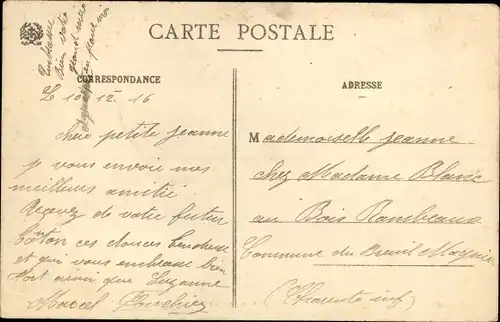 CARTE POSTALE
CORRESPONDANCE
ADRESSE
Le 10-12-16
Chère petite Jeanne
je vous envoie mes
meilleurs amitié
Recevez de votre futur
ces douces
et qui vous embrasse bien
fort ainsi que Suzanne
Marcel
Mademoiselle Jeanne
chez Madame Blanc
au Bois Rambeaux
Commune du Breuil Magné
(Charente inf)
Embrasse
bien votre
grand mère
pour moi